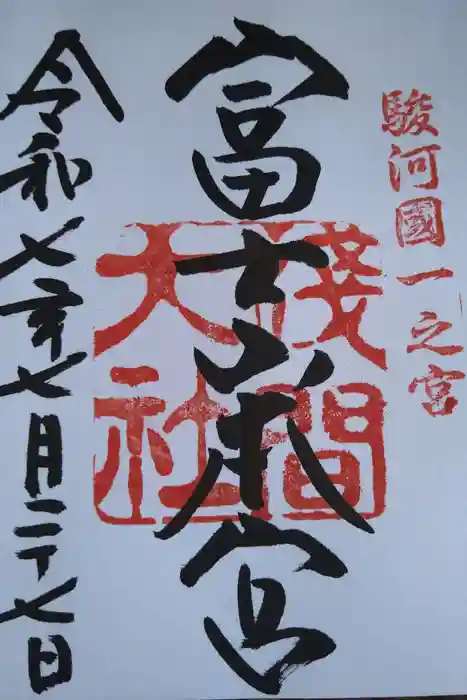 駿河國一之宮
富士山本宮
淺間
大社
令和七年七月二十七日